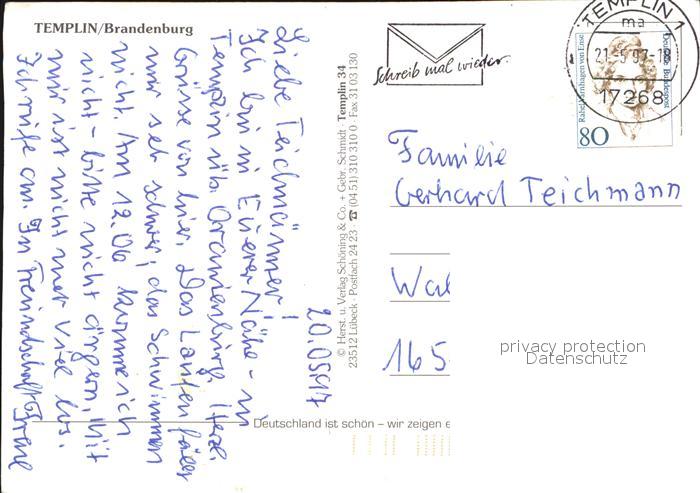 TEMPLIN/Brandenburg
20.05.97
Liebe Teichmänner!
Ich bin in Euerer Nähe - in
Templin üb. Oranienburg. Herzl.
Grüsse von hier. Das Laufen fällt
mir sehr schwer, das Schwimmen
nicht. Am 12.06 komme ich
nicht - bitte nicht ärgern, mit
mir ist nicht mehr viel los.
Ich rufe an. In Freundschaft Irene
© Herst. u. Verlag Schöning & Co. + Gebr. Schmidt · Templin 34
23512 Lübeck · Postfach 24 23 · ☎ (04 51) 310 310 0 · Fax 31 03 130
Schreib mal wieder.
TEMPLIN 1
ma
21-5.97-18
17268
Rahel Varnhagen von Ense
Deutsche Bundespost
80
Familie
Gerhard Teichmann
Wal
165
privacy protection
Datenschutz
Deutschland ist schön – wir zeigen e